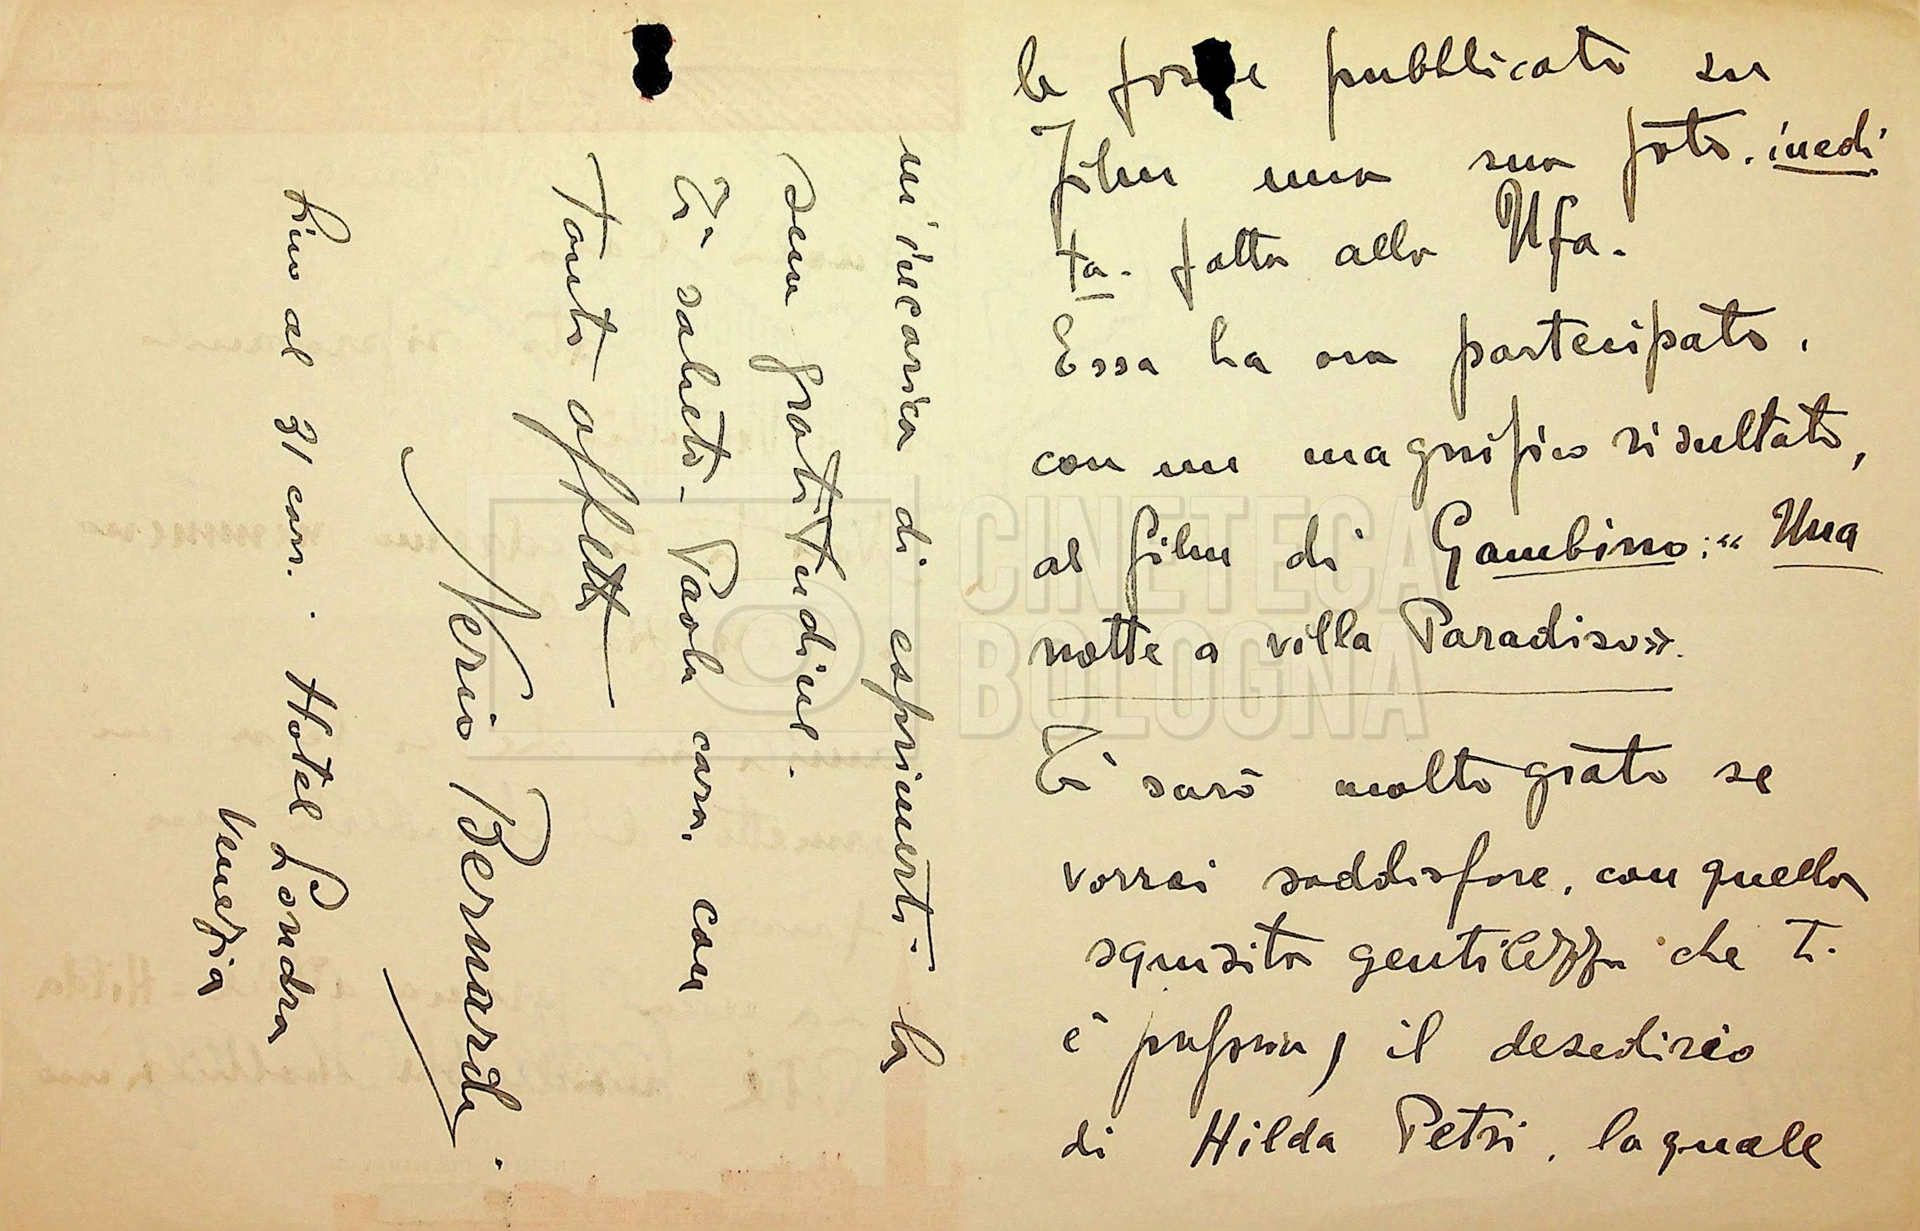 le fosse pubblicato su
Film una sua foto. inedi
ta. fatta alla Ufa.
Essa ha ora partecipato.
con un magnifico risultato,
al film di Gambino: « Una
notte a villa Paradiso».
Ti sarò molto grato se
vorrai soddisfare, con quella
squisita gentilezza che ti
è propria, il desedireo
di Hilda Petri, la quale
m'incarica di esprimerti la
sua gratitudine.
Ti saluto. Paola cara, con
tanto affetto
Nerio Bernardi.
Fino al 31 corr. Hotel Londra
Venezia
CINETECA
BOLOGNA